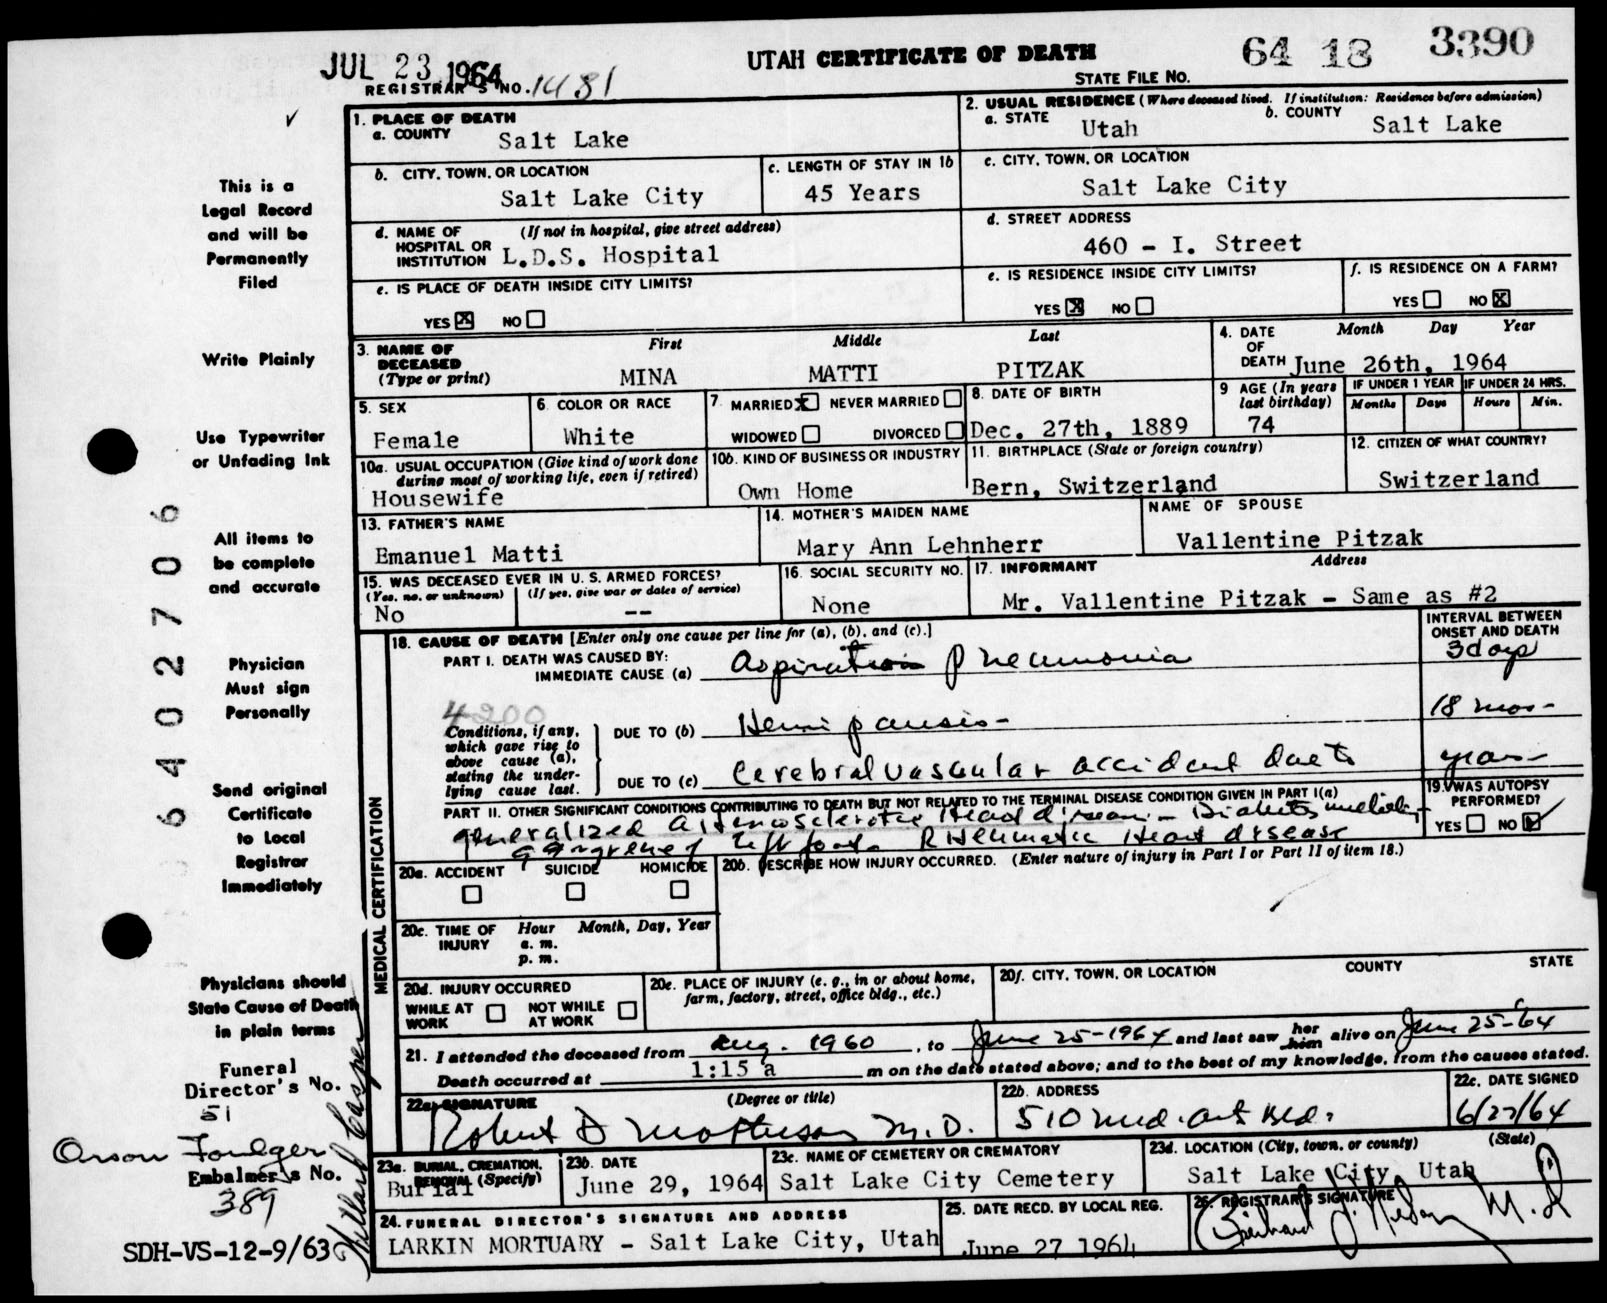 JUL 23 1964
UTAH CERTIFICATE OF DEATH
64 18 3390
REGISTRAR'S NO. 1431
STATE FILE NO.
1. PLACE OF DEATH
a. COUNTY Salt Lake
2. USUAL RESIDENCE (Where deceased lived. If institution: Residence before admission)
a. STATE Utah b. COUNTY Salt Lake
b. CITY, TOWN, OR LOCATION Salt Lake City
c. LENGTH OF STAY IN 1b 45 Years
c. CITY, TOWN, OR LOCATION Salt Lake City
d. NAME OF HOSPITAL OR INSTITUTION (If not in hospital, give street address) L.D.S. Hospital
d. STREET ADDRESS 460 - I. Street
e. IS PLACE OF DEATH INSIDE CITY LIMITS?
YES X NO
e. IS RESIDENCE INSIDE CITY LIMITS?
YES X NO
f. IS RESIDENCE ON A FARM?
YES NO X
3. NAME OF DECEASED (Type or print)
First Middle Last
MINA MATTI PITZAK
4. DATE OF DEATH Month Day Year
June 26th, 1964
5. SEX Female
6. COLOR OR RACE White
7. MARRIED X NEVER MARRIED
WIDOWED DIVORCED
8. DATE OF BIRTH Dec. 27th, 1889
9 AGE (In years last birthday) 74
IF UNDER 1 YEAR Months Days
IF UNDER 24 HRS. Hours Min.
10a. USUAL OCCUPATION (Give kind of work done during most of working life, even if retired)
Housewife
10b. KIND OF BUSINESS OR INDUSTRY Own Home
11. BIRTHPLACE (State or foreign country) Bern, Switzerland
12. CITIZEN OF WHAT COUNTRY? Switzerland
13. FATHER'S NAME Emanuel Matti
14. MOTHER'S MAIDEN NAME Mary Ann Lehnherr
NAME OF SPOUSE Vallentine Pitzak
15. WAS DECEASED EVER IN U. S. ARMED FORCES?
(Yes, no, or unknown) (If yes, give war or dates of service)
No --
16. SOCIAL SECURITY NO. None
17. INFORMANT Address
Mr. Vallentine Pitzak - Same as #2
18. CAUSE OF DEATH [Enter only one cause per line for (a), (b), and (c).]
INTERVAL BETWEEN ONSET AND DEATH
PART I. DEATH WAS CAUSED BY:
IMMEDIATE CAUSE (a) Aspiration Pneumonia 3 days
4200
Conditions, if any, which gave rise to above cause (a), stating the underlying cause last.
DUE TO (b) Hemiparesis - 18 mos-
DUE TO (c) Cerebral vascular accident due to years-
PART II. OTHER SIGNIFICANT CONDITIONS CONTRIBUTING TO DEATH BUT NOT RELATED TO THE TERMINAL DISEASE CONDITION GIVEN IN PART I(a)
generalized Arteriosclerotic Heart disease - Diabetes mellitus
gangrene of left foot. Rheumatic Heart disease
19. WAS AUTOPSY PERFORMED?
YES NO ✓
20a. ACCIDENT SUICIDE HOMICIDE
20b. DESCRIBE HOW INJURY OCCURRED. (Enter nature of injury in Part I or Part II of item 18.)
20c. TIME OF INJURY Hour a. m. p. m. Month, Day, Year
20d. INJURY OCCURRED
WHILE AT WORK NOT WHILE AT WORK
20e. PLACE OF INJURY (e. g., in or about home, farm, factory, street, office bldg., etc.)
20f. CITY, TOWN, OR LOCATION COUNTY STATE
21. I attended the deceased from Aug. 1960, to June 25-1964 and last saw her him alive on June 25-64
Death occurred at 1:15 a m on the date stated above; and to the best of my knowledge, from the causes stated.
22a. SIGNATURE (Degree or title) Robert D Mathews M.D.
22b. ADDRESS 510 Med. Arts Bld.
22c. DATE SIGNED 6/27/64
23a. BURIAL, CREMATION, REMOVAL (Specify) Burial
23b. DATE June 29, 1964
23c. NAME OF CEMETERY OR CREMATORY Salt Lake City Cemetery
23d. LOCATION (City, town, or county) (State)
Salt Lake City, Utah
24. FUNERAL DIRECTOR'S SIGNATURE AND ADDRESS
LARKIN MORTUARY - Salt Lake City, Utah
25. DATE RECD. BY LOCAL REG. June 27 1964
26. REGISTRAR'S SIGNATURE M.D.
MEDICAL CERTIFICATION
This is a
Legal Record
and will be
Permanently
Filed
Write Plainly
Use Typewriter
or Unfading Ink
All items to
be complete
and accurate
Physician
Must sign
Personally
Send original
Certificate
to Local
Registrar
Immediately
Physicians should
State Cause of Death
in plain terms
Funeral
Director's No.
51
Orson Foulger
Embalmer's No.
389
SDH-VS-12-9/63
Willard Casper
6402706